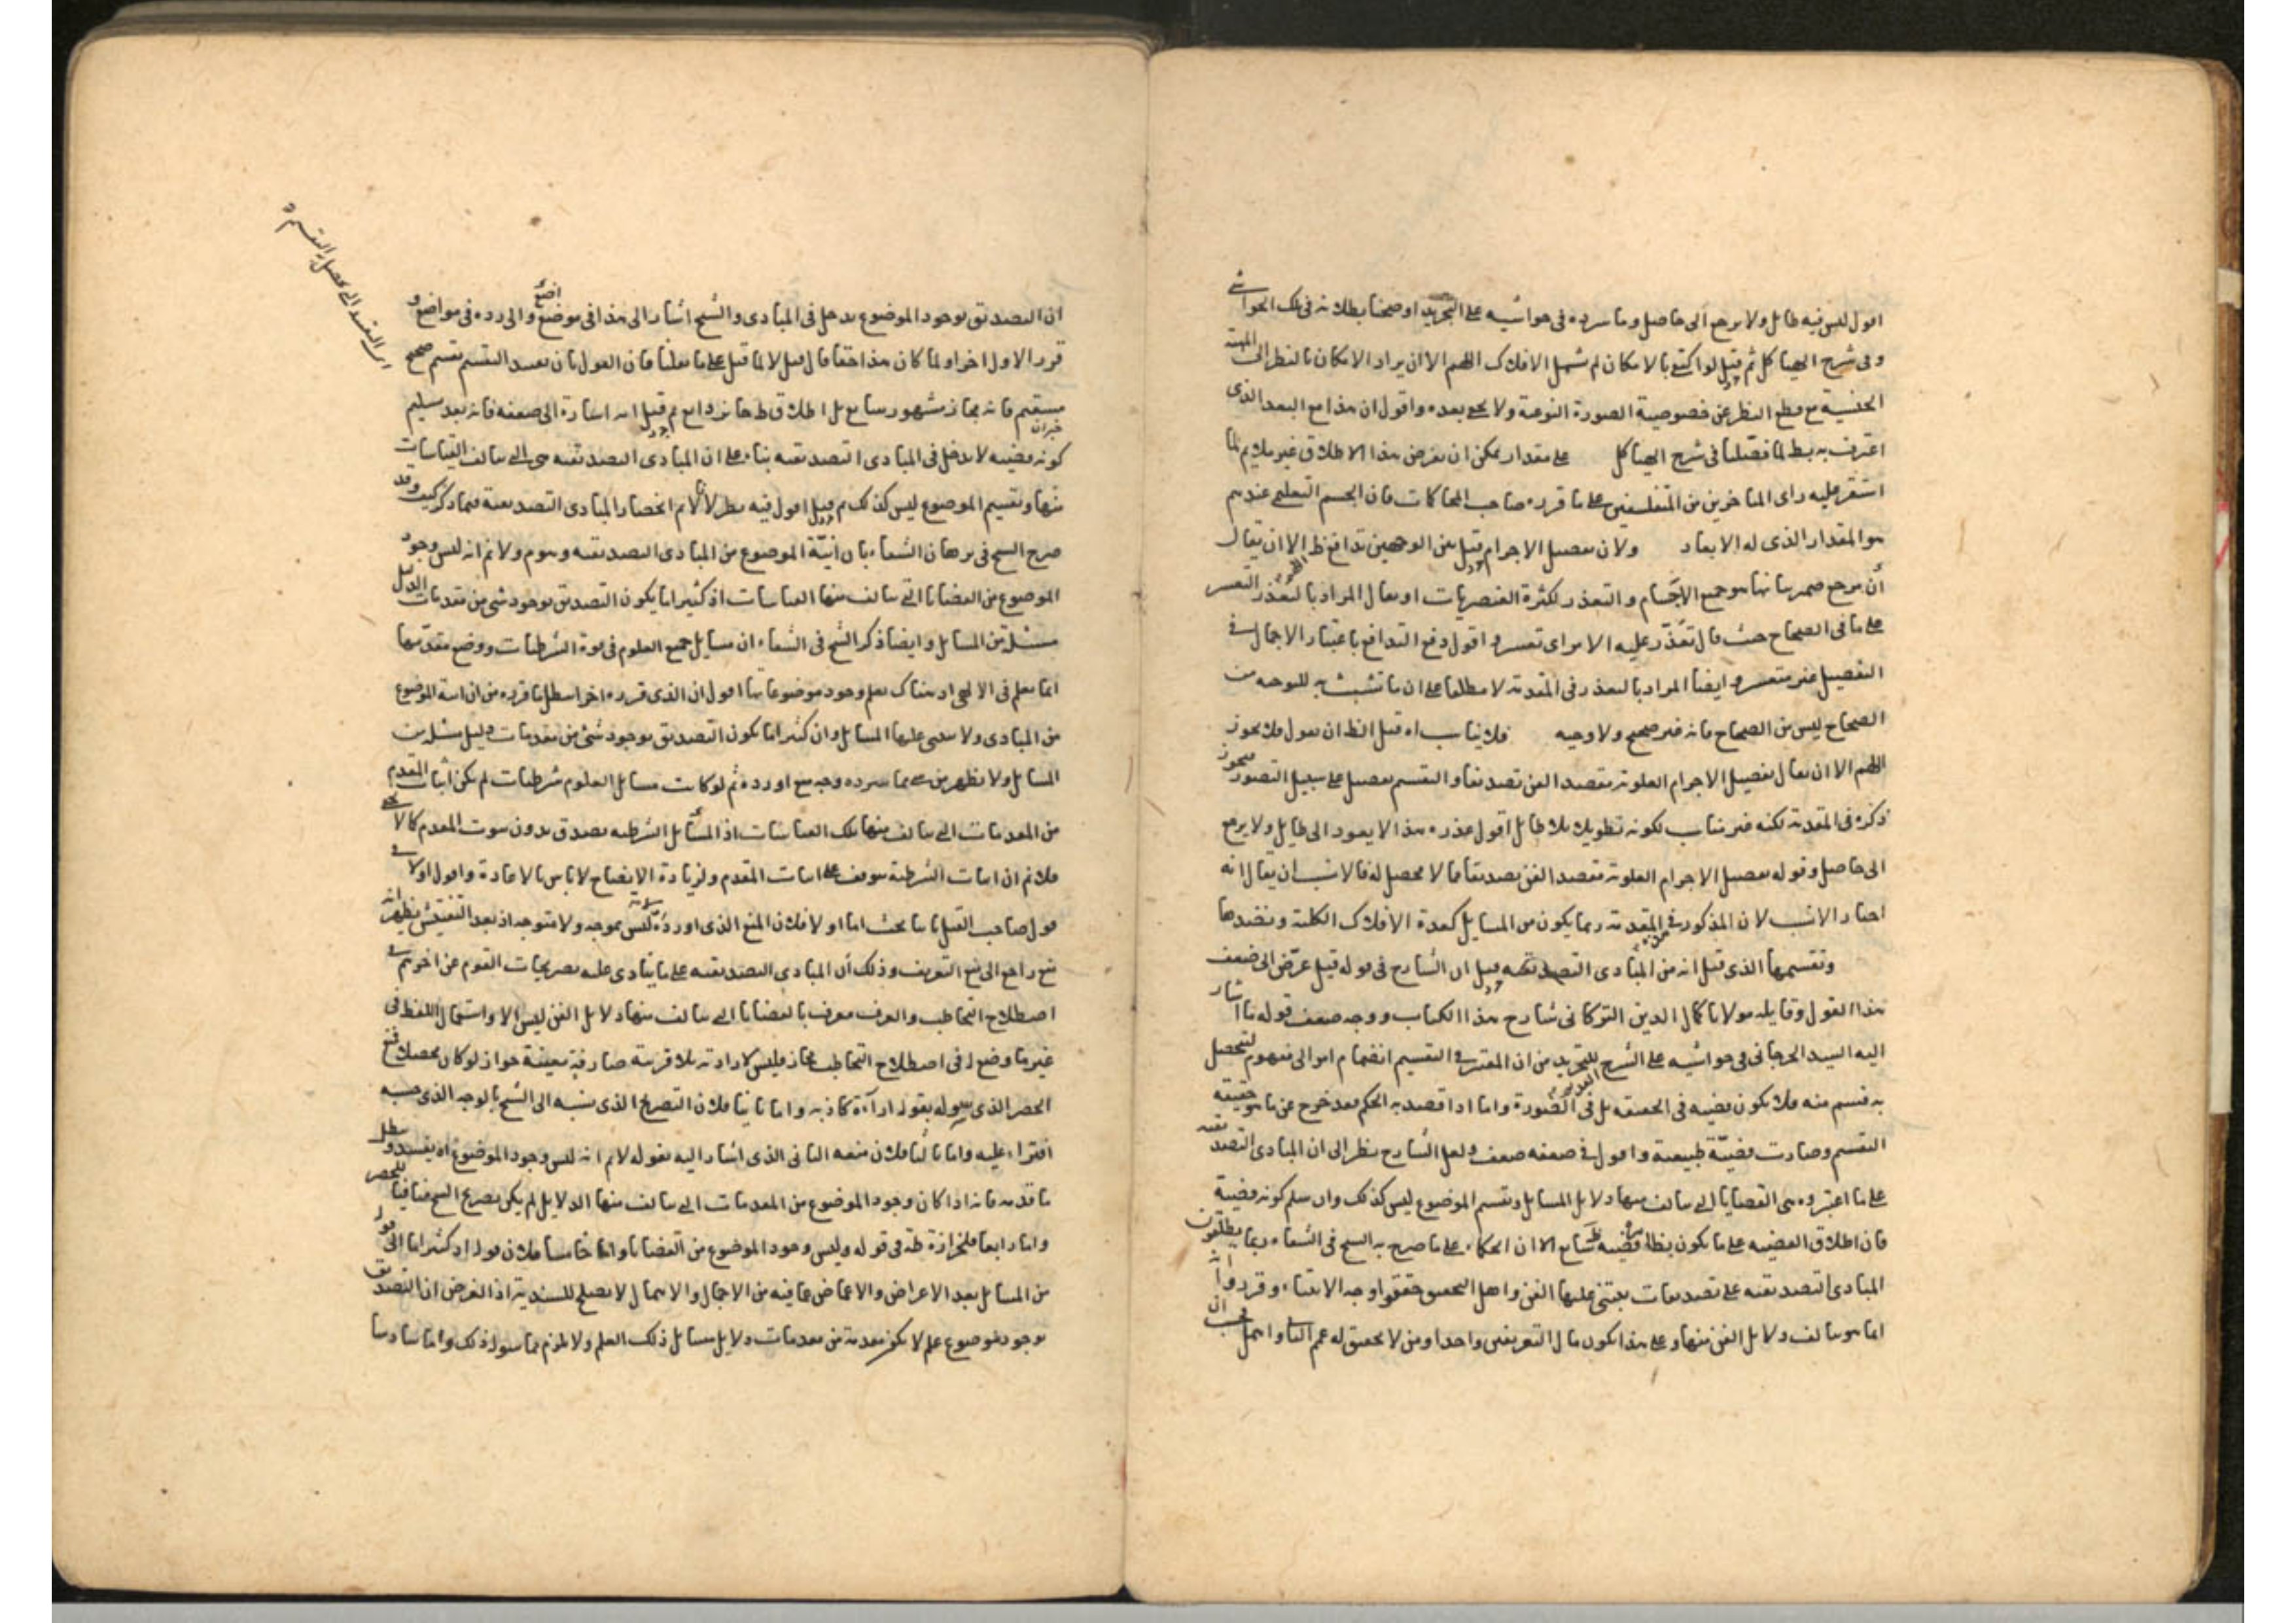 اقول ليس فيه طايل ولا يرجع الى حاصل وما سرده في حواشيه على التجريد اوضحنا بطلانه في تلك الحواشي
وفي شرح الهياكل ثم قيل لو اكتفى بالامكان لم يشمل الافلاك اللهم الا ان يراد الامكان بالنظر الى المهية
الجنسية مع قطع النظر عن خصوصية الصورة النوعية ولا يخفى بعده واقول ان هذا مع البعد الذي
اعترف به يبطل لما فصلنا في شرح الهياكل على مقدار يمكن ان يفرض هذا الاطلاق غير ملايم لما
استقر عليه راى المتاخرين من المتفلسفين على ما قرره صاحب المحاكمات فان الجسم التعليمي عندهم
هو المقدار الذي له الابعاد ولان تفصيل الاجرام قيل بين الوجهين تدافع ظ الا ان يقال
ان مرجع ضمير بيانها هو جميع الاجسام والتعذر لكثرة العنصريات او يقال المراد بالتعذر التعسر
على ما في الصحاح حيث قال تعذر عليه الامر اى تعسر واقول دفع التدافع باعتبار الاجمال في
التفصيل غير متعسر وايضا المراد بالتعذر في المقدمة لا مطلقا على ان ما تشبث به للتوجيه من
الصحاح ليس من الصحاح فانه غير صحيح ولا وجيه فلا يناسب اه قيل الظ ان يقول فلا يجوز
اللهم الا ان يقال تفصيل الاجرام العلوية مقصد الفن تصديقا والتقسيم تفصيل على سبيل التصور فيجوز
ذكره في المقدمة لكنه غير مناسب لكونه تطويلا بلا طايل اقول عذره هذا لا يعود الى طايل ولا يرجع
الى حاصل وقوله تفصيل الاجرام العلوية مقصد الفن تصديقا مما لا محصل له فالانسب ان يقال انه
اختار الانسب لان المذكور في المقدمة ربما يكون من المسايل كعدة الافلاك الكلية ونضدها
وتقسيمها الذي قيل انه من المبادى التصديقية قيل ان الشارح في قوله قيل عرّض الى ضعف
هذا القول وقايله مولانا كمال الدين التركاني شارح هذا الكتاب ووجه ضعف قوله ما اشار
اليه السيد الجرجاني في حواشيه على الشرح للتجريد من ان المعتبر في التقسيم انضمام امر الى مفهوم لتحصل
به قسم منه فلا يكون قضية في الحقيقة بل في الصورة واما اذا قصد به الحكم فقد خرج عن ما هو حقيقة
التقسيم وصارت قضيّة طبيعية واقول في ضعفه ضعف ولعل الشارح نظر الى ان المبادى التصديقية
على ما اعتبروه هى القضايا التي يتالف منها دلايل المسايل وتقسيم الموضوع ليس كذلك وان سلم كونه قضية
فان اطلاق القضية على ما يكون بظاهره قضية شايع الا ان الحكماء على ما صرح به الشيخ في الشفاء ربما يطلقون
المبادى التصديقية على تصديقات يبتنى عليها الفن واهل التحقيق حققوا وجه الابتناء وقرروا انه
انما هو بتالف دلايل الفن منها وعلى هذا يكون مآل التعريفين واحدا ومن لا تحقيق له عمم البناء واهمل فحسب ان
ان التصديق بوجود الموضوع يدخل في المبادى والشيخ اشار الى هذا في موضع والى رده في مواضع و
قرر الاول اخرا ولما كان هذا حقا قال قيل لا لما قيل على ما نقلنا فان القول بان تقسيم التقسيم تقسيم صحيح
مستقيم فانه مجاز مشهور شايع بل اطلاق ظاهر ذايع ثم قيل انه اشارة الى ضعفه فانه بعد تسليم
كونه قضية لا يدخل في المبادى التصديقية بناء على ان المبادى التصديقية هي التي يتالف القياسات
منها وتقسيم الموضوع ليس كذلك ثم قيل اقول فيه نظر لانا لانم انحصار المبادى التصديقية فيما ذكر كيف وقد
صرح الشيخ في برهان الشفاء بان انيّة الموضوع من المبادى التصديقية ولانم انه ليس وجود
الموضوع من القضايا التي يتالف منها القياسات اذ كثيرا ما يكون التصديق بوجود شي من مقدمات الدليل
مسئلة من المسايل وايضا ذكر الشيخ في الشفاء ان مسايل جميع العلوم في قوة الشرطيات ووضع مقدمها
انما يعلم في الالهى اذ هناك يعلم وجود موضوعاتها اقول ان الذي قرره اخرا يبطل ما قرره من ان انية الموضوع
من المبادى ولا يبتنى عليها المسايل وان كثيرا ما يكون التصديق بوجود شئ من مقدمات دليل مسئلة من
المسايل ولا يظهر من شئ مما سرده وجه منع اورده ثم لو كانت مسايل العلوم شرطيات لم يكن اثبات المقدم
من المقدمات التي يتالف منها تلك القياسات اذ المسايل الشرطية يصدق بدون ثبوت المقدم كما لا يخفى
فلانم ان اثبات الشرطية موقوف على اثبات المقدم ولزيادة الايضاح لاباس بالاعادة واقول اولا في
قول صاحب القيل مباحث اما اولا فلان المنع الذي اورده ليس بموجه ولا متوجه اذ بعد التفتيش يظهر انه
منع راجع الى منع التعريف وذلك ان المبادى التصديقية على ما ينادى عليه تصريحات القوم عن اخرهم في
اصطلاح التخاطب والعرف معرف بالقضايا التي يتالف منها دلايل الفن ليس الا واستعمال اللفظ في
غير ما وضع له في اصطلاح التخاطب مجاز فليس لارادته بلا قرينة صارفة معينة جواز لو كان محصلا فمنع
الحصر الذي بقوله اراءة كاذبه واما ثانيا فلان التصريح الذي نسبه الى الشيخ بالوجه الذي حسبه
افتراء عليه واما ثالثا فلان منعه الثاني الذي اشار اليه بقوله لانم انه ليس وجود الموضوع اه يفسد ويبطل
ما قدمه فانه اذا كان وجود الموضوع من المقدمات التي يتالف منها الدلايل لم يكن تصريح الشيخ منافيا للحصر
واما رابعا فلحزازة ظ في قوله وليس وجود الموضوع من القضايا واما خامسا فلان قوله اذ كثيرا ما الى قوله
من المسايل بعد الاعراض والاغماض عما فيه من الاجمال والاهمال لا يصلح للسندية اذ الغرض ان التصديق
بوجود موضوع علم لا يكون مقدمة من مقدمات دلايل مسايل ذلك العلم ولا يلزم مما سواه ذلك واما سادسا